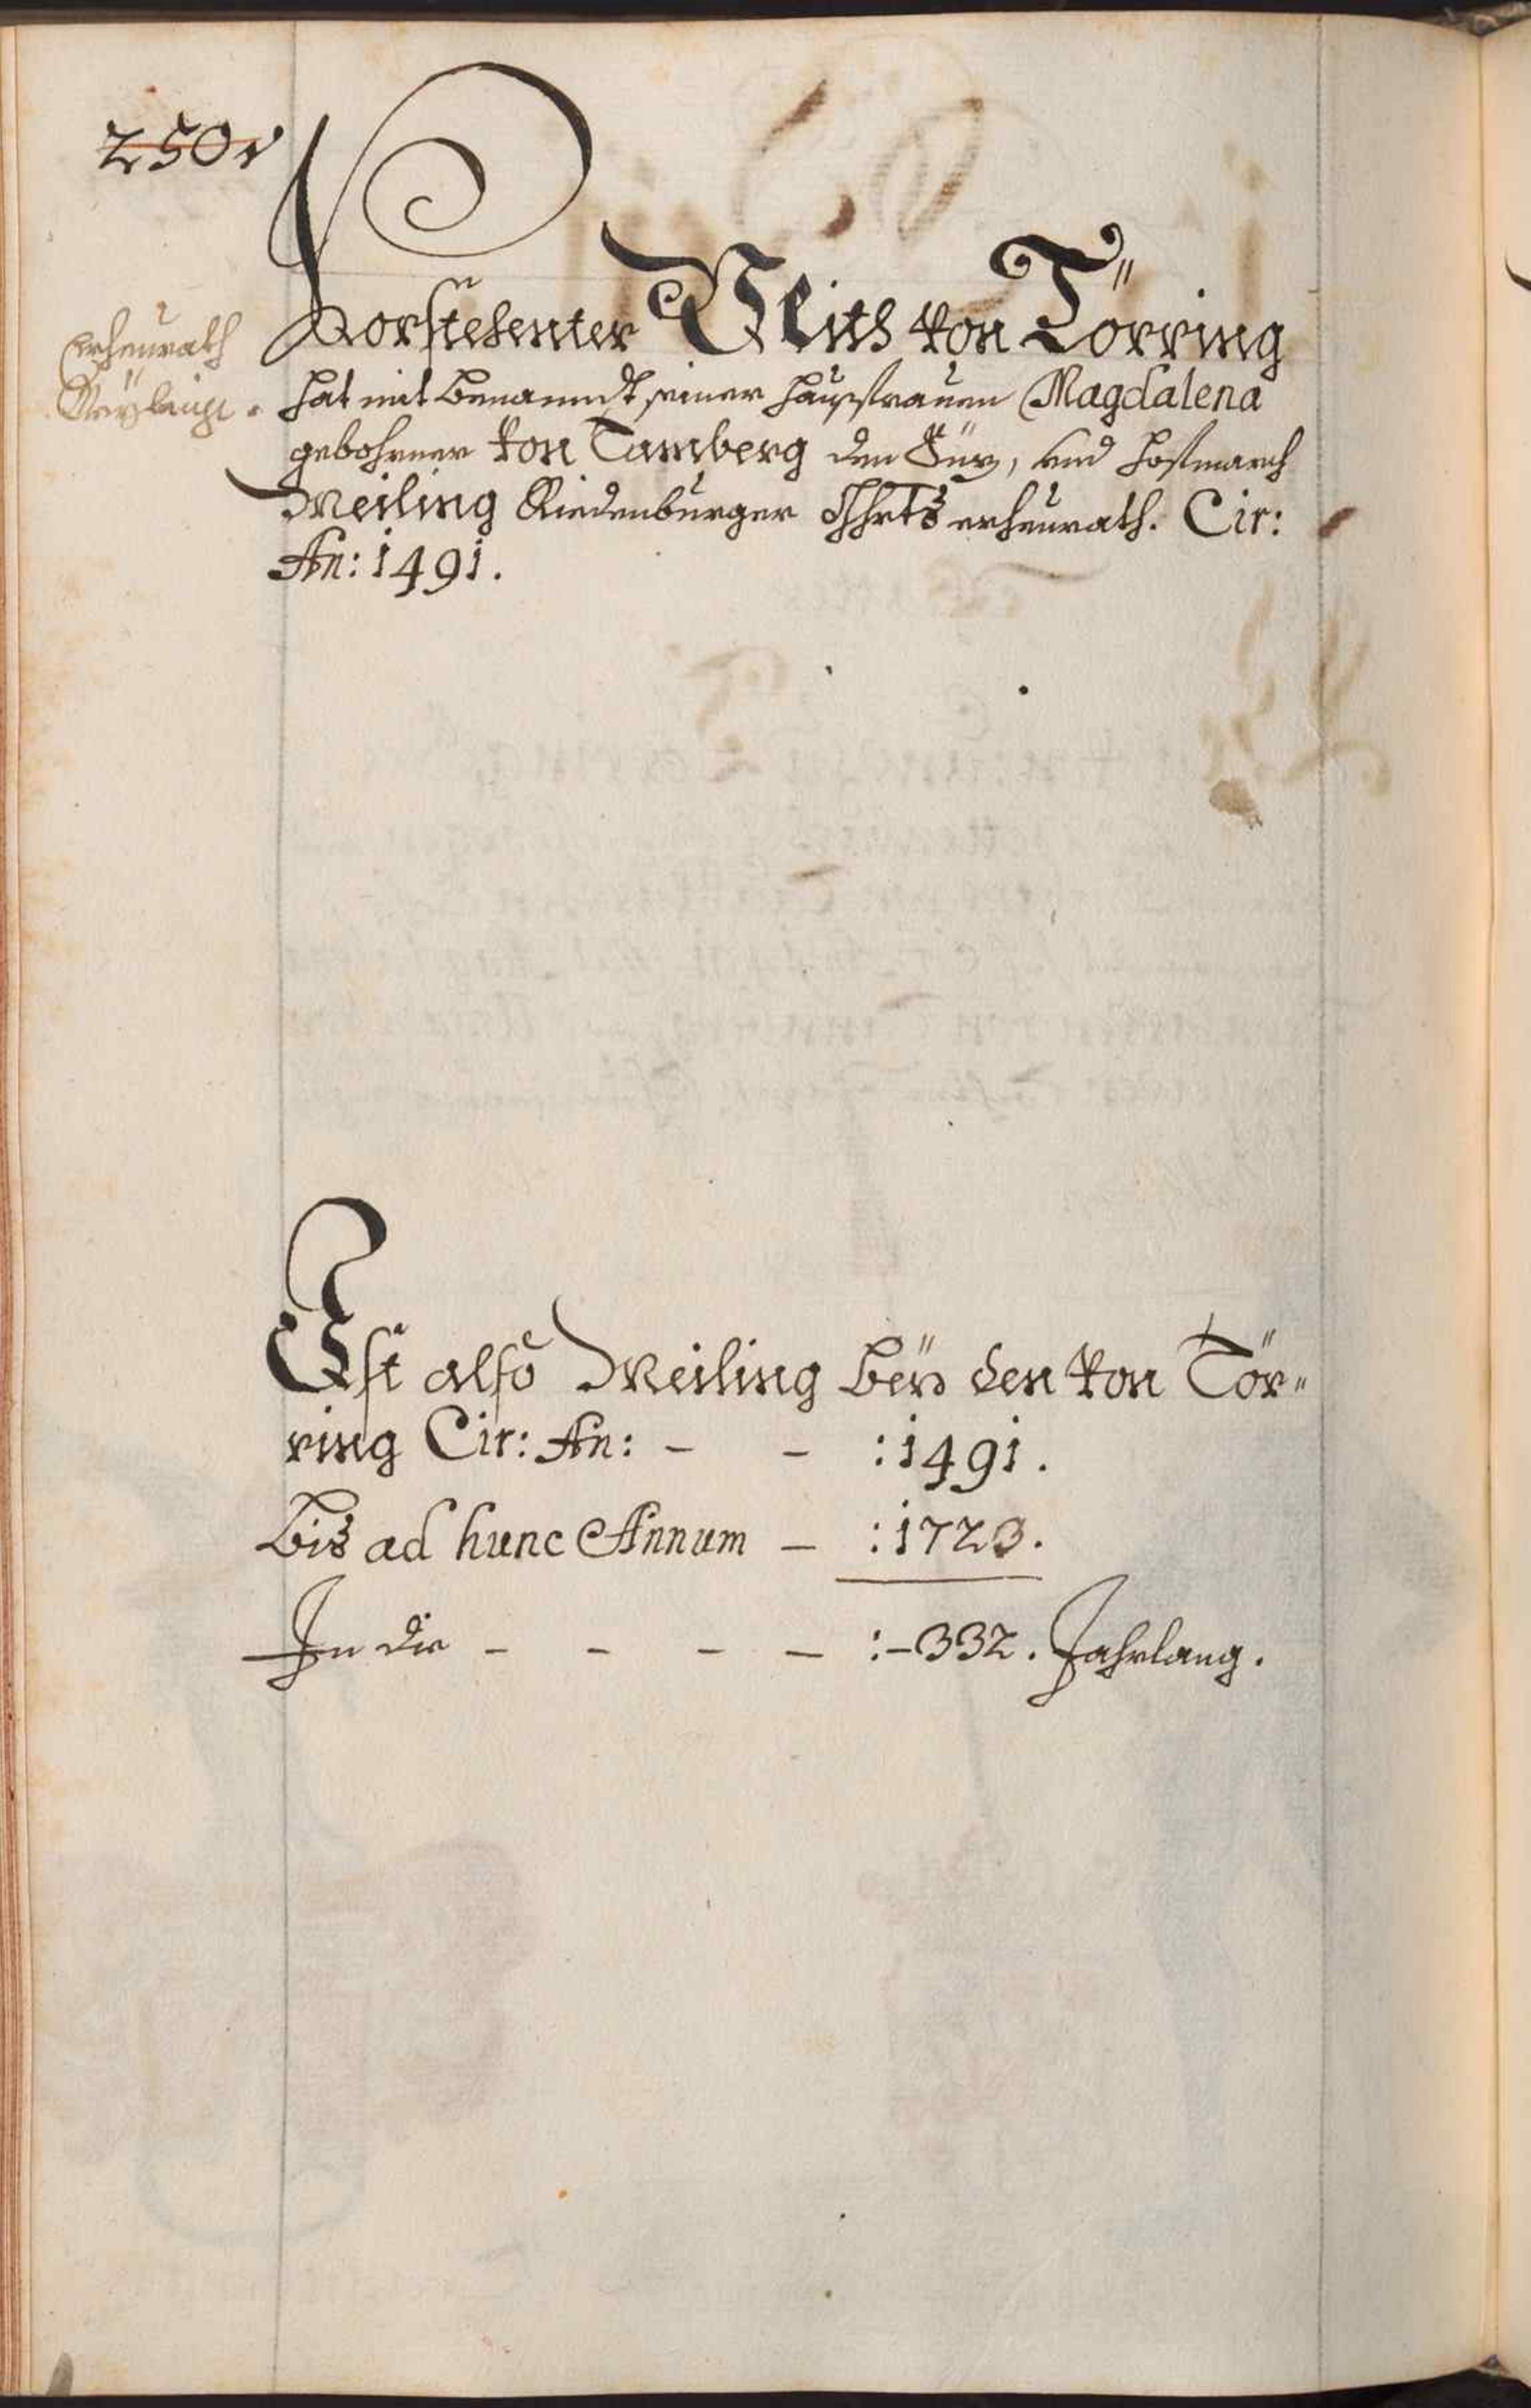 250v
Vorstehenter Veith von Törring
erheurath
hat mit benanndt seiner haußfrauen Magdalena
gebohrner von Tamberg den Süz, und hofmarch
Meiling Riedenburger Ghrts erheurath. Cir:
An: 1491.
Ist also Meiling beÿ den von Tör"
ring Cir: An: - - : 1491.
bis ad hunc Annum - : 1723.
In die - - - - :-332. Jahrlang.